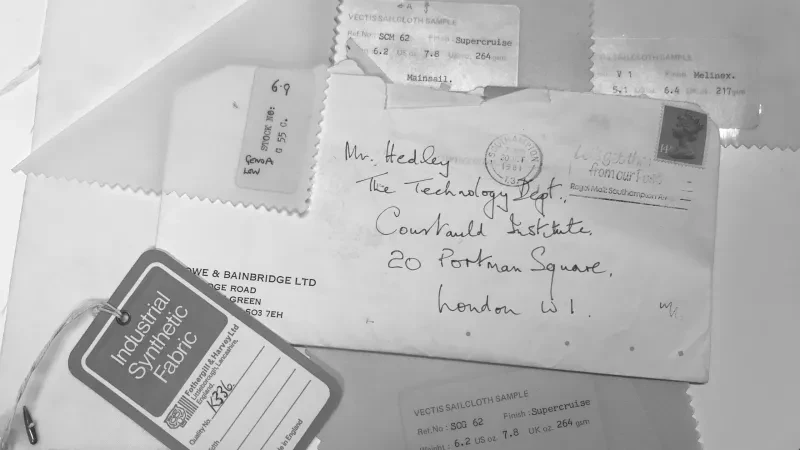 VECTIS SAILCLOTH SAMPLE
Ref.No: SCM 62 Finish: Supercruise
6.2 US oz 7.8 UK oz 264 gsm
Mainsail.
SAILCLOTH SAMPLE
V 1 Finish Melinex.
5.1 US oz 6.4 UK oz 217 gsm
6.9
STOCK NO:
0.55 G.
GENOA
LOW
SOUTHAMPTON
1981
from our
Royal Mail Southampton
Mr. Hedley
The Technology Dept.,
Courtauld Institute,
20 Portman Square,
London W1.
OWE & BAINBRIDGE LTD
DGE ROAD
GREEN
SO3 7EH
Industrial
Synthetic
Fabric
Fothergill & Harvey Ltd
Littleborough, Lancashire,
England.
Quality No. K336
Made in England
VECTIS SAILCLOTH SAMPLE
Ref.No: SCG 62 Finish: Supercruise
Weight: 6.2 US oz 7.8 UK oz 264 gsm